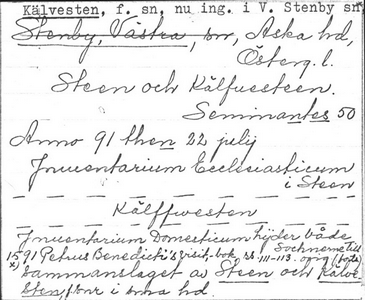 Kälvesten, f. sn, nu ing. i V. Stenby sn
Stenby, Västra, sn, Aska hd,
Österg. l.
Steen och Kälfuesteen.
Seminantes 50
Anno 91 then 22 julij
Inuentarium Ecclesiasticum
i Steen
Kälffwesten
Inuentarium Domesticum lyder både
Sochnerne till
1591 Petrus Benedicti's visit.-bok, ss. 111-113. orig (foto)
x) Sammanslaget av Steen och Kälve-
sten, snr i sma hd